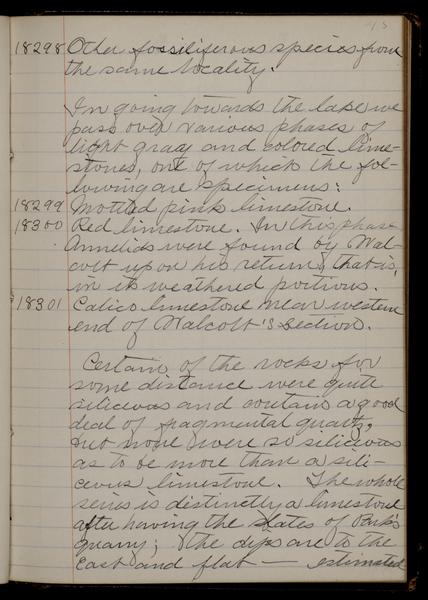 18298 Other fossiliferous species from
the same locality.
In going towards the lake we
pass over various phases of
light gray and colored lime-
stones, out of which the fol-
lowing are specimens:
18299 Mottled pink limestone.
18300 Red limestone. In this phase
Annelids were found by Wal-
cott upon his return, that is,
in its weathered portions.
18301 Calico limestone near western
end of Walcott's section.
Certain of the rocks for
some distance were quite
silicious and contain a good
deal of fragmental quartz,
but none were so silicious
as to be more than a sili-
ceous limestone. The whole
series is distinctly a limestone
after leaving the slates of Park's
quarry; the dips are to the
East and flat — estimated